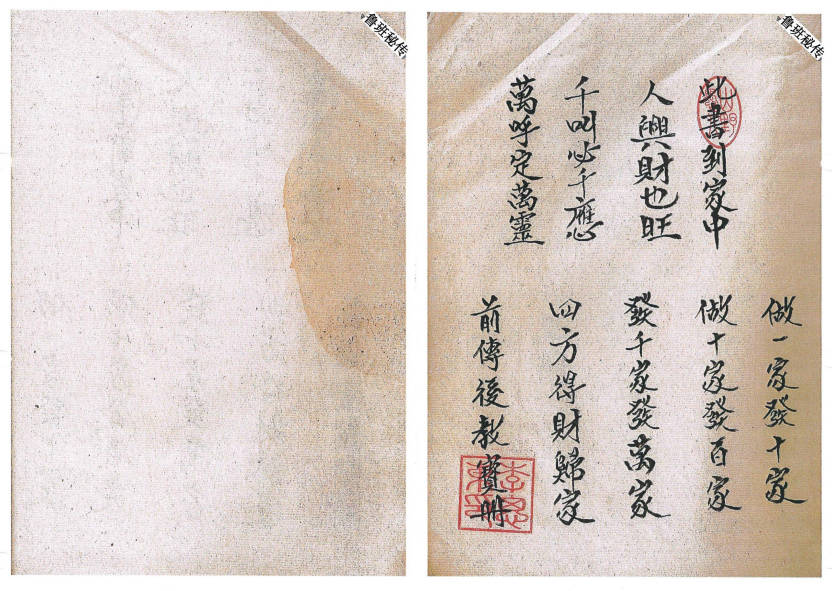 鲁班秘传
鲁班秘传
此書到家中
人興財也旺
千叫必千應
萬呼定萬靈
做一家發十家
做十家發百家
發千家發萬家
四方得財歸家
前傳後教寶册